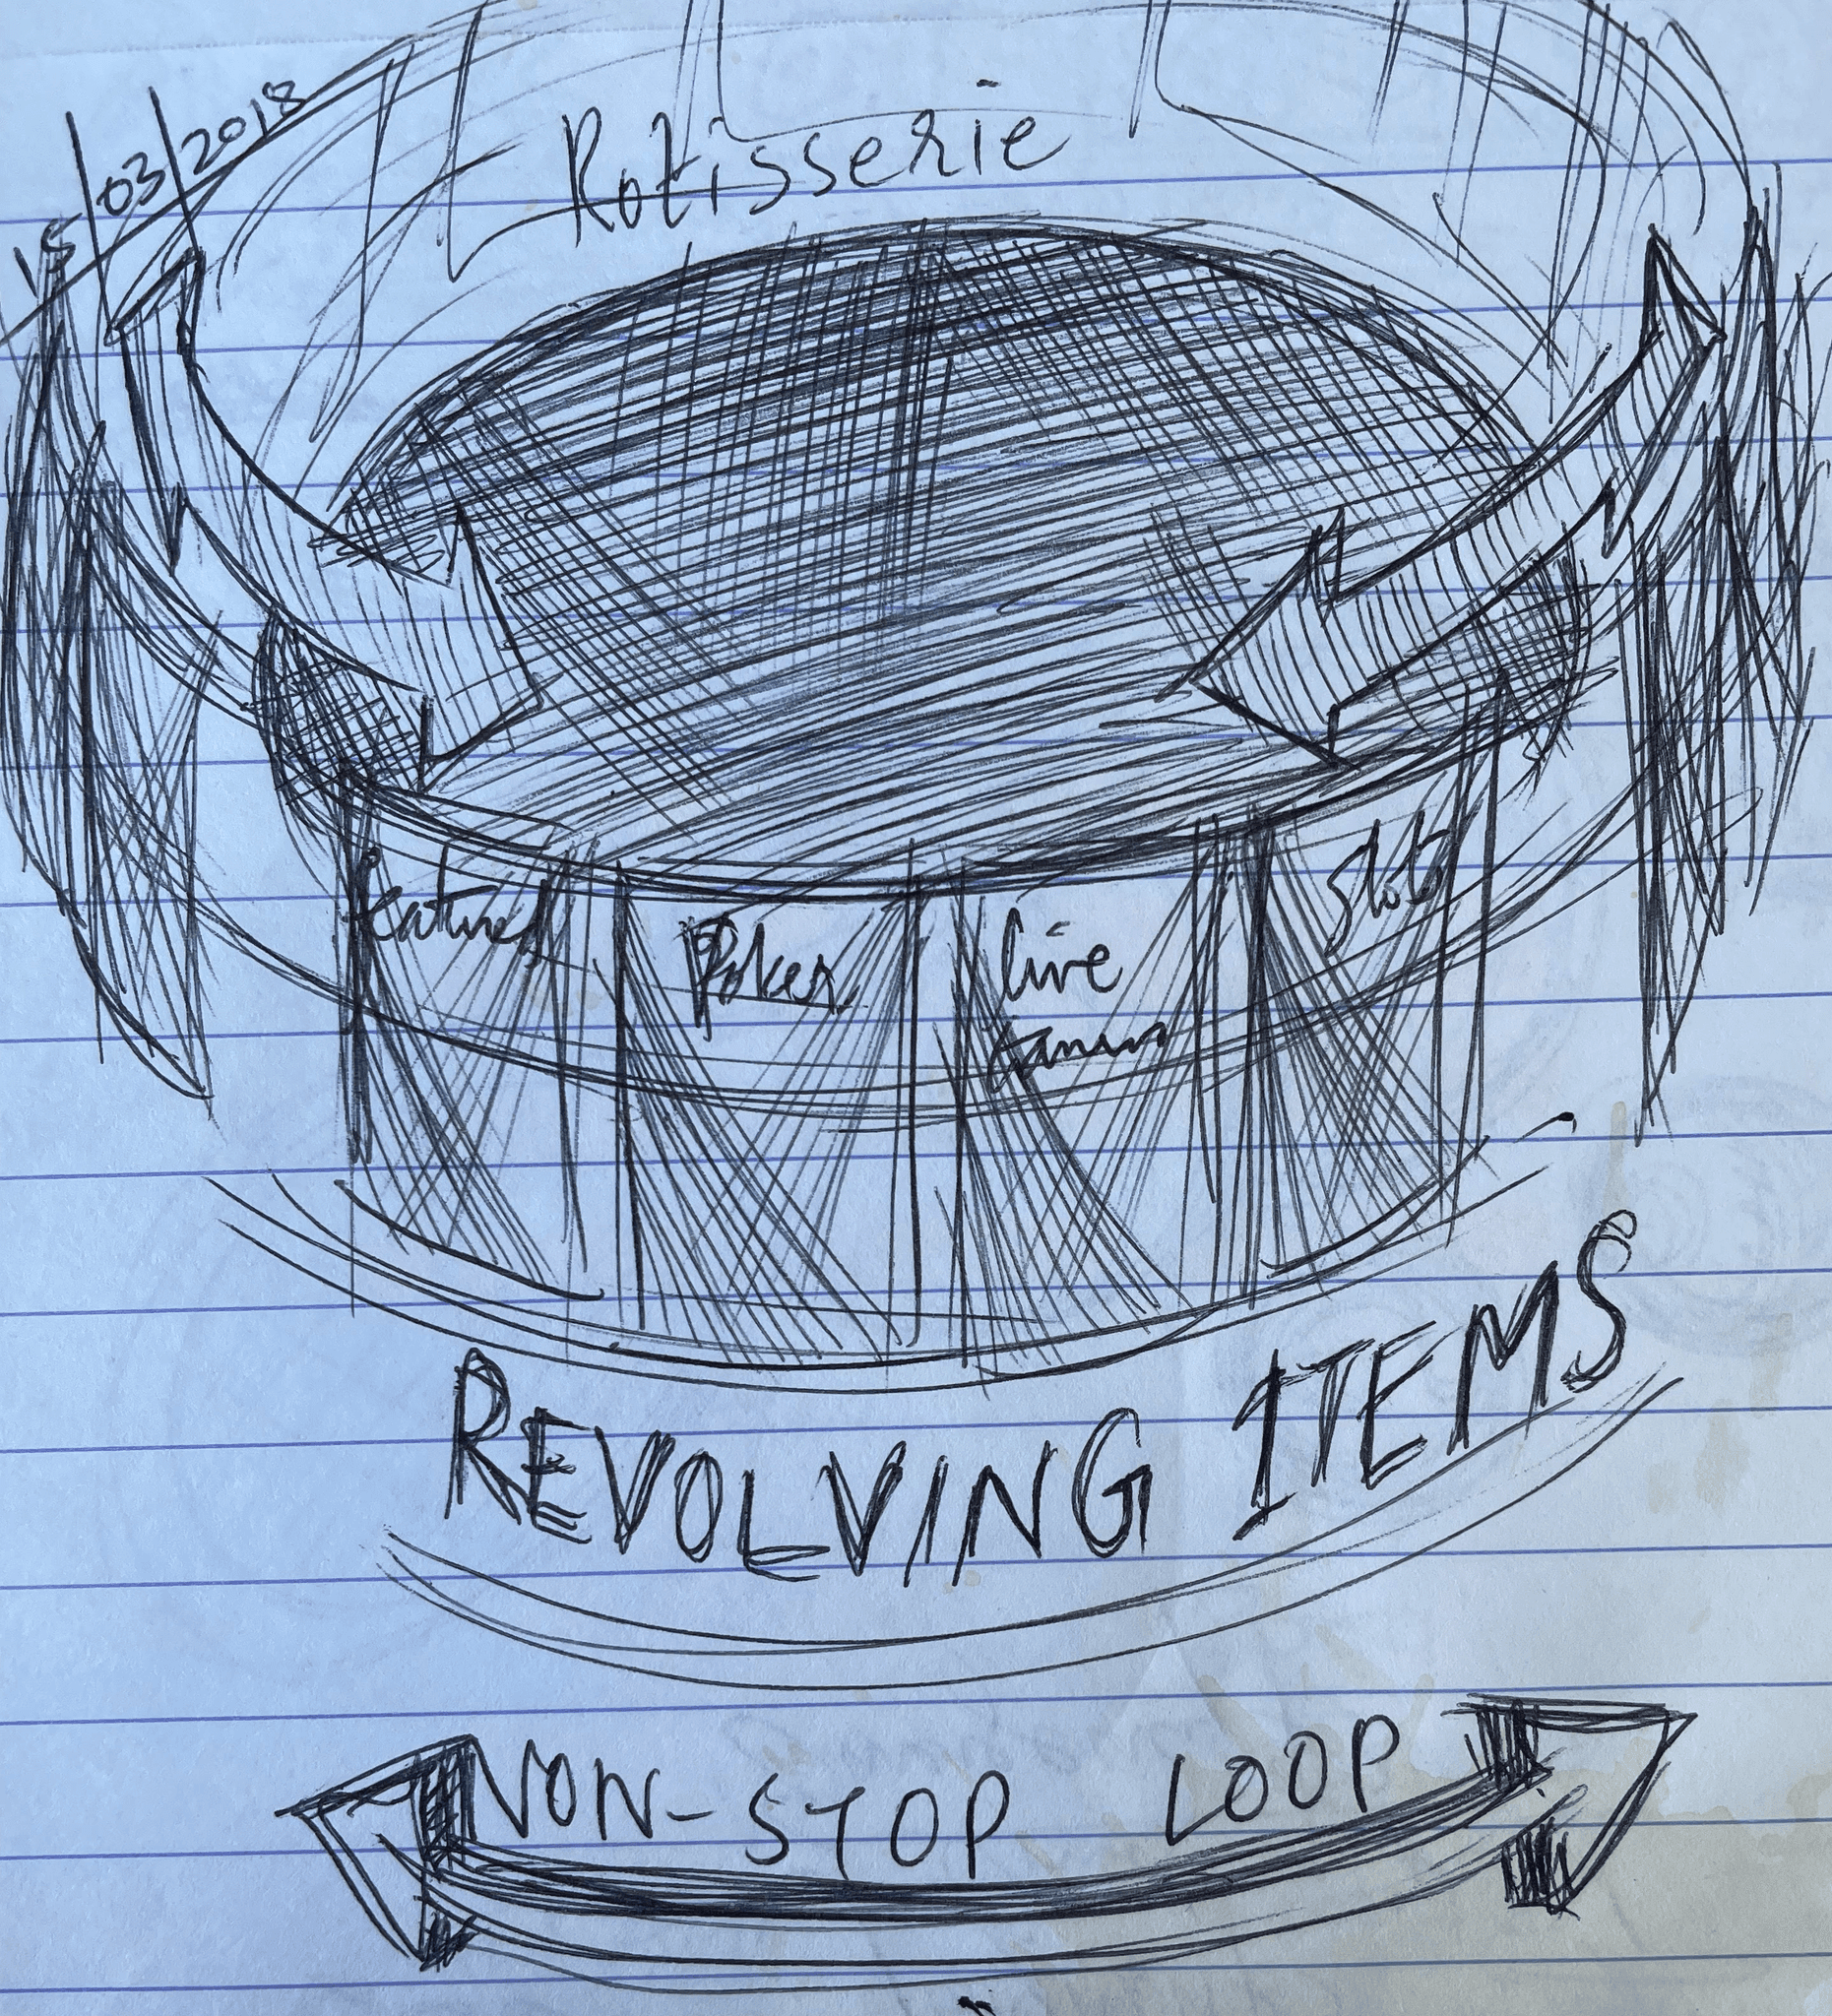 15/03/2018
Rotisserie
featured
Poker
live
slots
REVOLVING ITEMS
NON-STOP LOOP